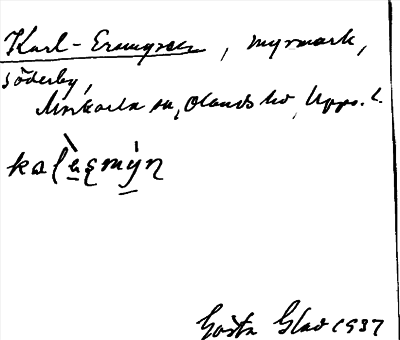 Karl-Ersmyren, myrmark,
Söderby,
sn, Olands hd, Upps. l.
Gösta Glad 1937